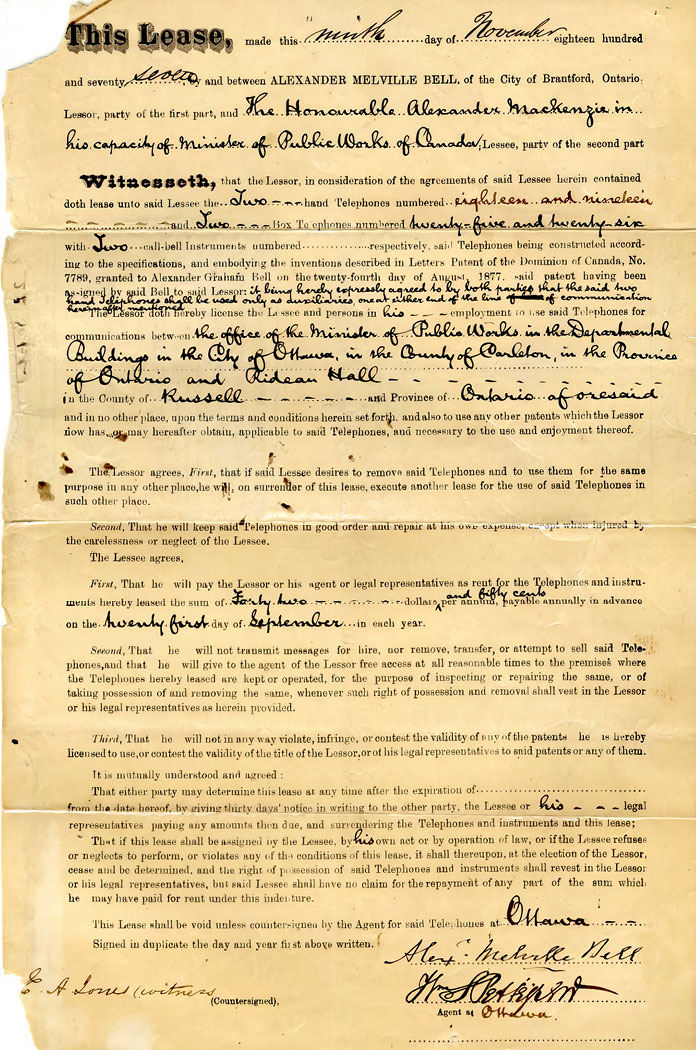 This Lease, made this ninth day of November eighteen hundred
and seventy seven, by and between ALEXANDER MELVILLE BELL, of the City of Brantford, Ontario.
Lessor, party of the first part, and The Honourable Alexander Mackenzie in
his capacity of Minister of Public Works of Canada, Lessee, party of the second part
Witnesseth, that the Lessor, in consideration of the agreements of said Lessee herein contained
doth lease unto said Lessee the Two - - - hand Telephones numbered eighteen and nineteen
- - - - - - - - and Two - - - Box Telephones numbered twenty-five and twenty-six
with Two call-bell Instruments numbered ............ respectively, said Telephones being constructed accord-
ing to the specifications, and embodying the inventions described in Letters Patent of the Dominion of Canada, No.
7789, granted to Alexander Graham Bell on the twenty-fourth day of August, 1877. said patent having been
assigned by said Bell to said Lessor: it being hereby expressly agreed to by both parties that the said two
hand Telephones shall be used only as auxiliaries, one at either end of the line of communication
hereinafter mentioned
The Lessor doth hereby license the Lessee and persons in his - - - employment to use said Telephones for
communications between the office of the Minister of Public Works in the Departmental
Buildings in the City of Ottawa, in the County of Carleton, in the Province
of Ontario and Rideau Hall - - - - - - - -
in the County of Russell - - - - - - and Province of Ontario aforesaid
and in no other place, upon the terms and conditions herein set forth, and also to use any other patents which the Lessor
now has, or may hereafter obtain, applicable to said Telephones, and necessary to the use and enjoyment thereof.
The Lessor agrees, First, that if said Lessee desires to remove said Telephones and to use them for the same
purpose in any other place, he will, on surrender of this lease, execute another lease for the use of said Telephones in
such other place.
Second, That he will keep said Telephones in good order and repair at his own expense, except when injured by
the carelessness or neglect of the Lessee.
The Lessee agrees,
First, That he will pay the Lessor or his agent or legal representatives as rent for the Telephones and instru-
and fifty cents
ments hereby leased the sum of Forty two - - - - - - dollars ^ per annum, payable annually in advance
on the twenty first day of September in each year.
Second, That he will not transmit messages for hire, nor remove, transfer, or attempt to sell said Tele-
phones, and that he will give to the agent of the Lessor free access at all reasonable times to the premises where
the Telephones hereby leased are kept or operated, for the purpose of inspecting or repairing the same, or of
taking possession of and removing the same, whenever such right of possession and removal shall vest in the Lessor
or his legal representatives as herein provided.
Third, That he will not in any way violate, infringe, or contest the validity of any of the patents he is hereby
licensed to use, or contest the validity of the title of the Lessor, or of his legal representatives to said patents or any of them.
It is mutually understood and agreed :
That either party may determine this lease at any time after the expiration of
from the date hereof, by giving thirty days' notice in writing to the other party, the Lessee or his - - - legal
representatives paying any amounts then due, and surrendering the Telephones and instruments and this lease;
That if this lease shall be assigned by the Lessee, by his own act or by operation of law, or if the Lessee refuses
or neglects to perform, or violates any of the conditions of this lease, it shall thereupon, at the election of the Lessor,
cease and be determined, and the right of possession of said Telephones and instruments shall revest in the Lessor
or his legal representatives, but said Lessee shall have no claim for the repayment of any part of the sum which
he may have paid for rent under this indenture.
This Lease shall be void unless countersigned by the Agent for said Telephones at Ottawa - - -
Signed in duplicate the day and year first above written.
Alexr. Melville Bell
E. A Jones (witness
(Countersigned),
Agent at Ottawa